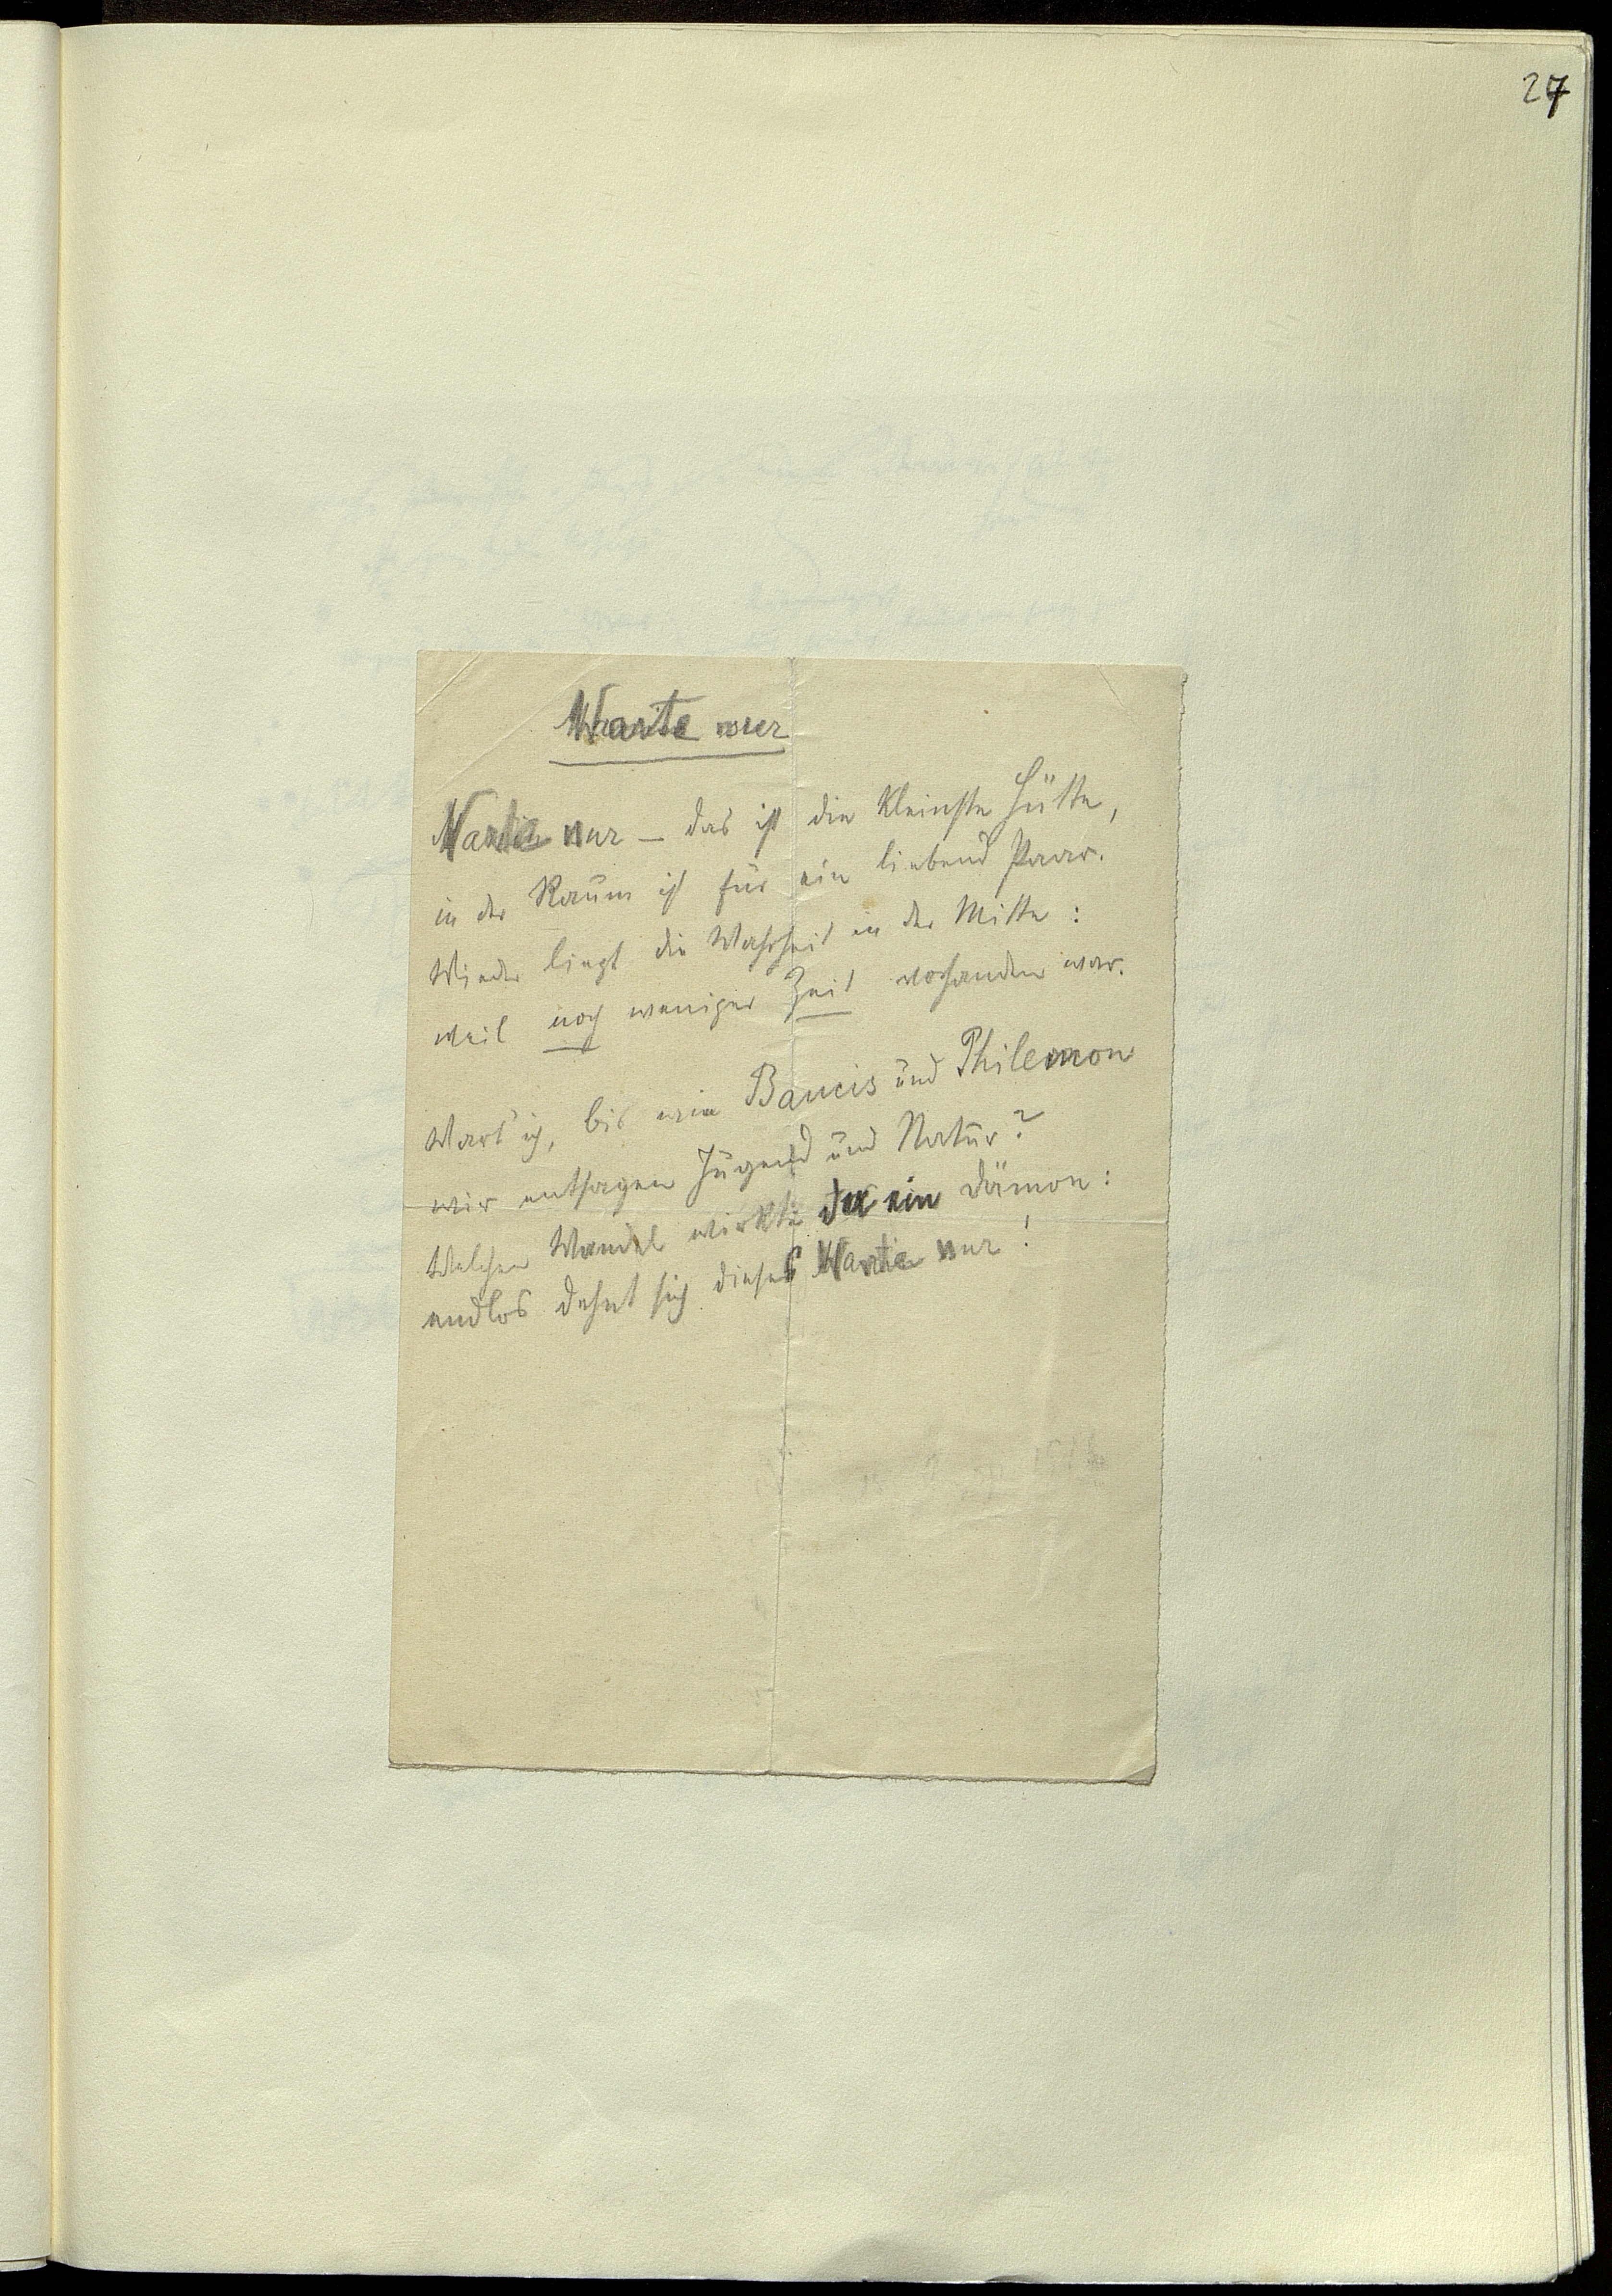 27
Warte nur
Warte nur – das ist die kleinste Hütte,
in der Raum ist für ein liebend Paar.
Wieder liegt die Wahrheit in der Mitte:
weil noch weniger Zeit vorhanden war.
Wart' ich, bis wie Baucis und Philemon
wir entsagen Jugend und Natur?
Welchen Wandel wirkte da ein Dämon:
endlos dehnt sich dieses Warte nur!